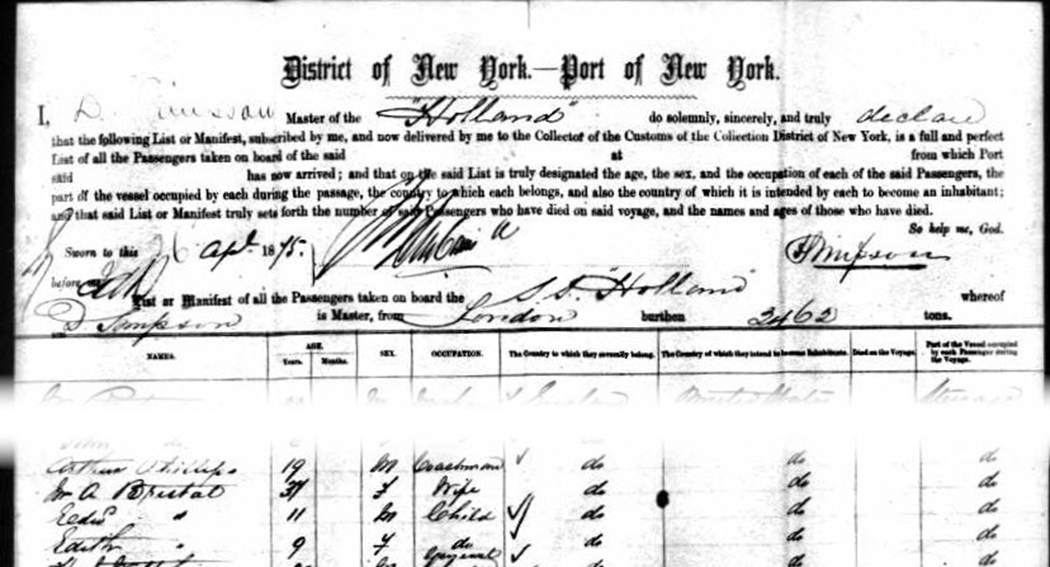 District of New York.—Port of New York.
I, D. Master of the "Holland" do solemnly, sincerely, and truly declare
that the following List or Manifest, subscribed by me, and now delivered by me to the Collector of the Customs of the Collection District of New York, is a full and perfect
List of all the Passengers taken on board of the said at from which Port
said has now arrived; and that on the said List is truly designated the age, the sex, and the occupation of each of the said Passengers, the
part of the vessel occupied by each during the passage, the country to which each belongs, and also the country of which it is intended by each to become an inhabitant;
and that said List or Manifest truly sets forth the number of said Passengers who have died on said voyage, and the names and ages of those who have died.
So help me, God.
Sworn to this 6 Apl 1875. D Simpson
before me
List or Manifest of all the Passengers taken on board the S.S. "Holland" whereof
D Simpson is Master, from London burthen 2462 tons.
NAMES. AGE. Years. Months. SEX. OCCUPATION. The Country to which they severally belong. The Country of which they intend to become Inhabitants. Died on the Voyage. Part of the Vessel occupied by each Passenger during the Voyage.
M England United States Steerage
Arthur Phillips 19 M Coachman do do do
A Bristol 37 F Wife do do do
Edw " 11 M Child do do do
Edith " 9 F do do do do
do do do